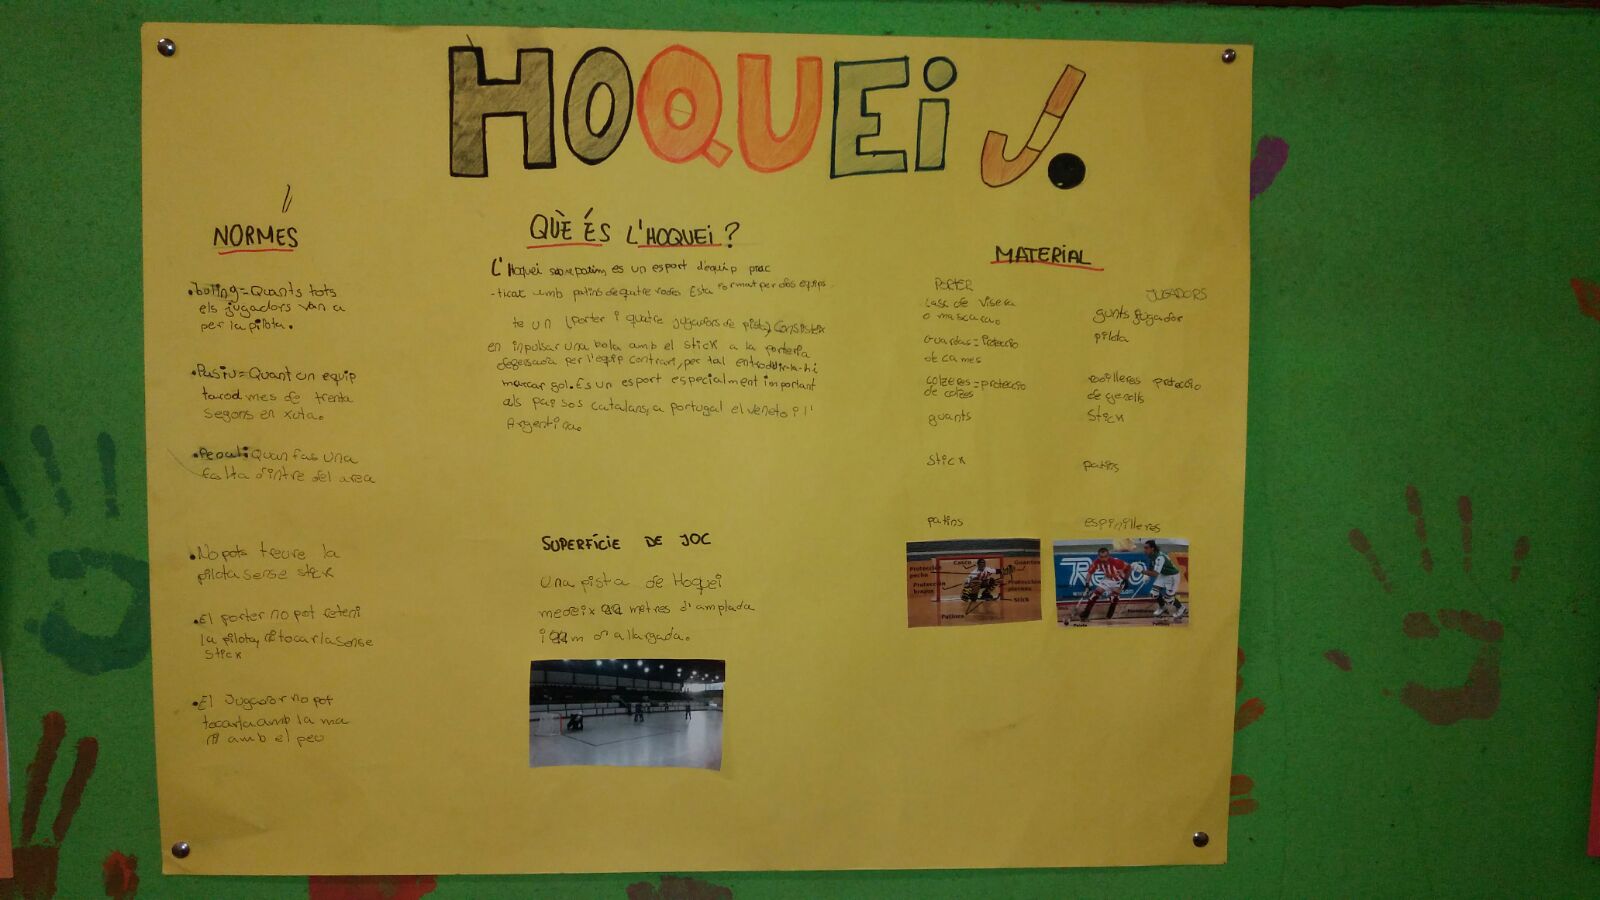 HOQUEi
NORMES
•buling=Quants tots
els jugadors van a
per la pilota.
•Pasiu=Quant un equip
tarda mes de trenta
segons en xuta.
•Penal: Quan fas una
falta dintre del area
•No pots treure la
pilota sense stick
•El porter no pot reteni
la pilota, ni tocarla sense
stick
•El Jugador no pot
tocarla amb la ma
ni amb el peu
QUÈ ÉS L'HOQUEi?
L'Hoquei sobre patins es un esport d'equip prac
-ticat amb patins de quatre rodes Esta format per dos equips
te un (porter i quatre jugadors de pista) Consisteix
en inpulsar una bola amb el stick a la porteria
degensada per l'equip contrari, per tal entroduir-la-hi
marcar gol. Es un esport especialment important
als paisos Catalans, a portugal el veneto i l'
Argentina.
SUPERFÍCIE DE JOC
Una pista de Hoquei
medeix metres d'amplada
i m d'allargada.
MATERIAL
PORTER
casc de visera
o mascara.
Guardas=Protecció
de cames
colzeres=protecció
de colzes
guants
stick
patins
JUGADORS
gunts jugador
pilota
rodilleres protecció
de genolls
Stick
patins
espinilleres
Casco
Guantes
Protección
pecho
Protección
brazos
Protección
piernas
Stick
Patines